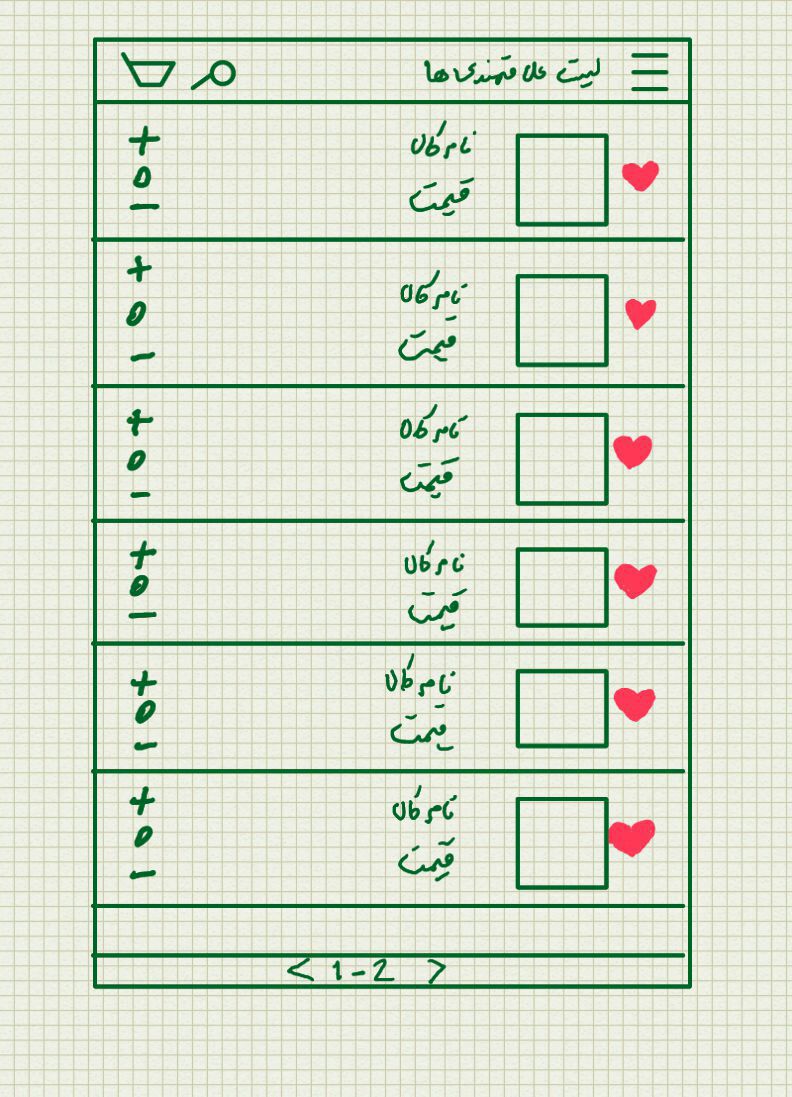 لیست علاقمندی ها
نام کالا
قیمت
+
0
-
نام کالا
قیمت
+
0
-
نام کالا
قیمت
+
0
-
نام کالا
قیمت
+
0
-
نام کالا
قیمت
+
0
-
نام کالا
قیمت
+
0
-
< 1-2 >